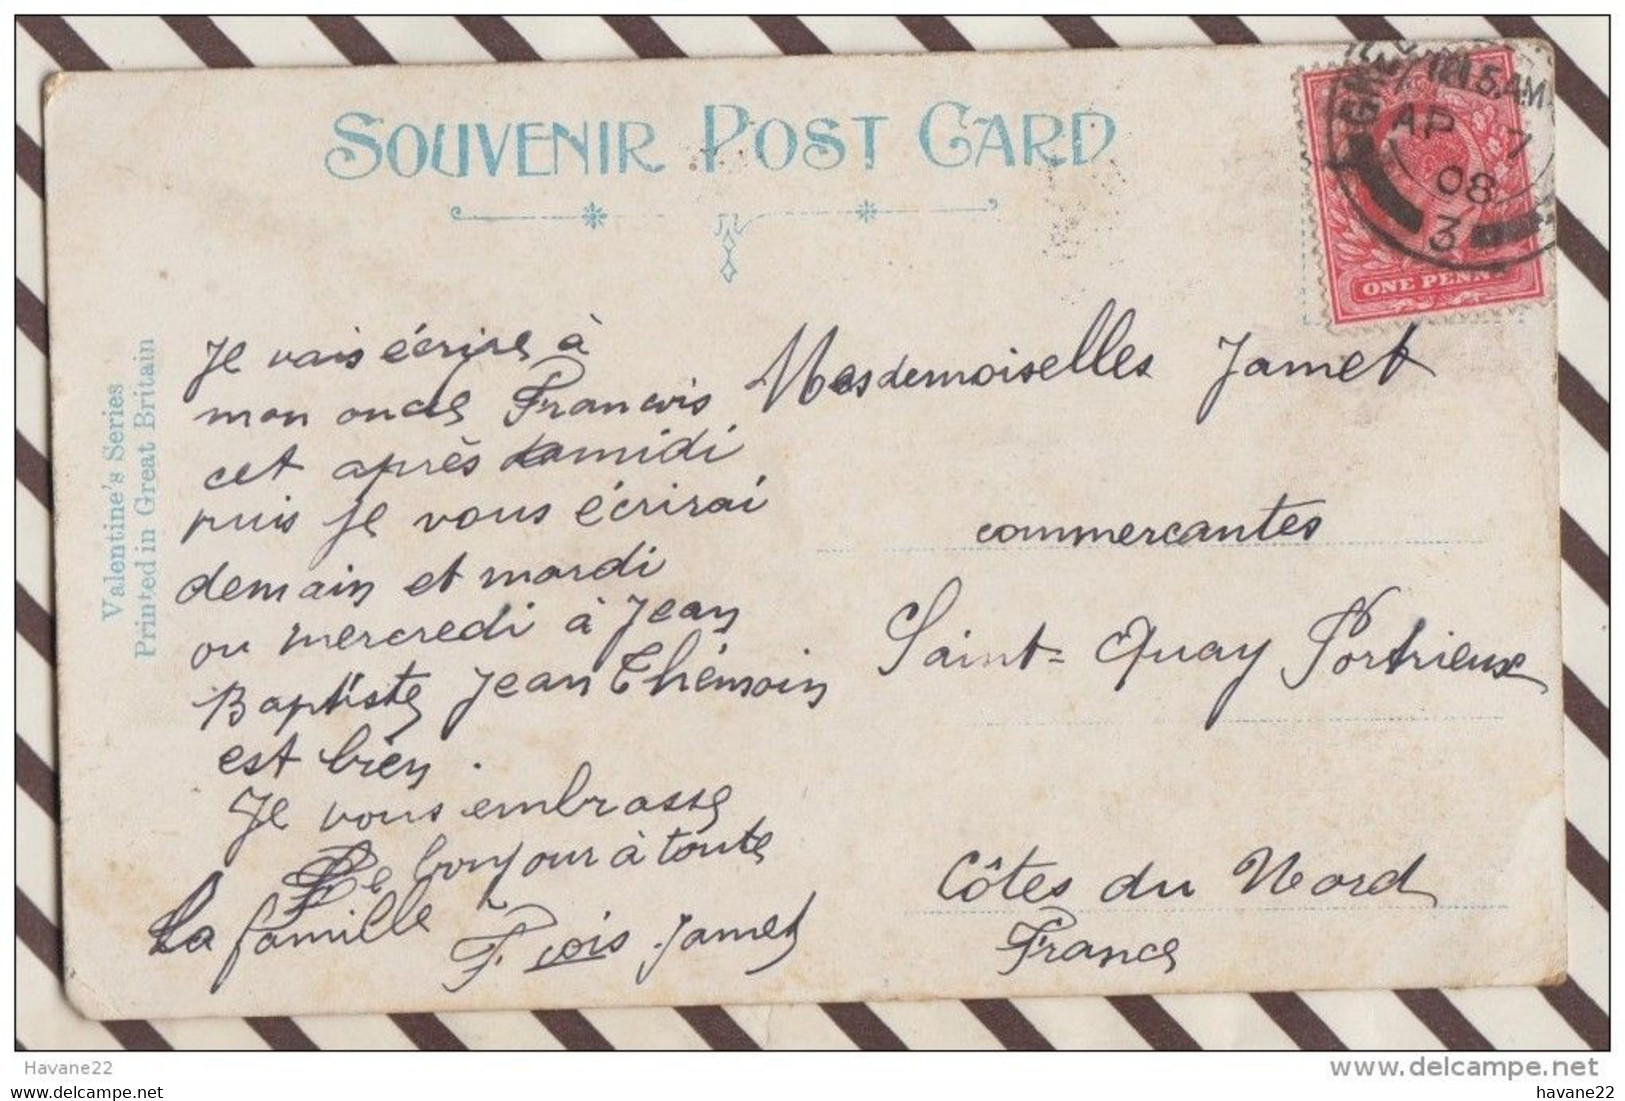 SOUVENIR POST CARD
12.15.AM
AP 7
08
3
ONE PENNY
Valentine's Series
Printed in Great Britain
Je vais écrire à
mon oncle Francois
cet après midi
puis je vous écrirai
demain et mardi
ou mercredi à Jean
Baptiste Jean Thémoin
est bien.
Je vous embrasse
Le bonjour à toute
La famille
F.cois Jamet
Mesdemoiselles Jamet
commercantes
Saint-Quay Portrieux
Côtes du Nord
France
Havane22
www.delcampe.net
havane22